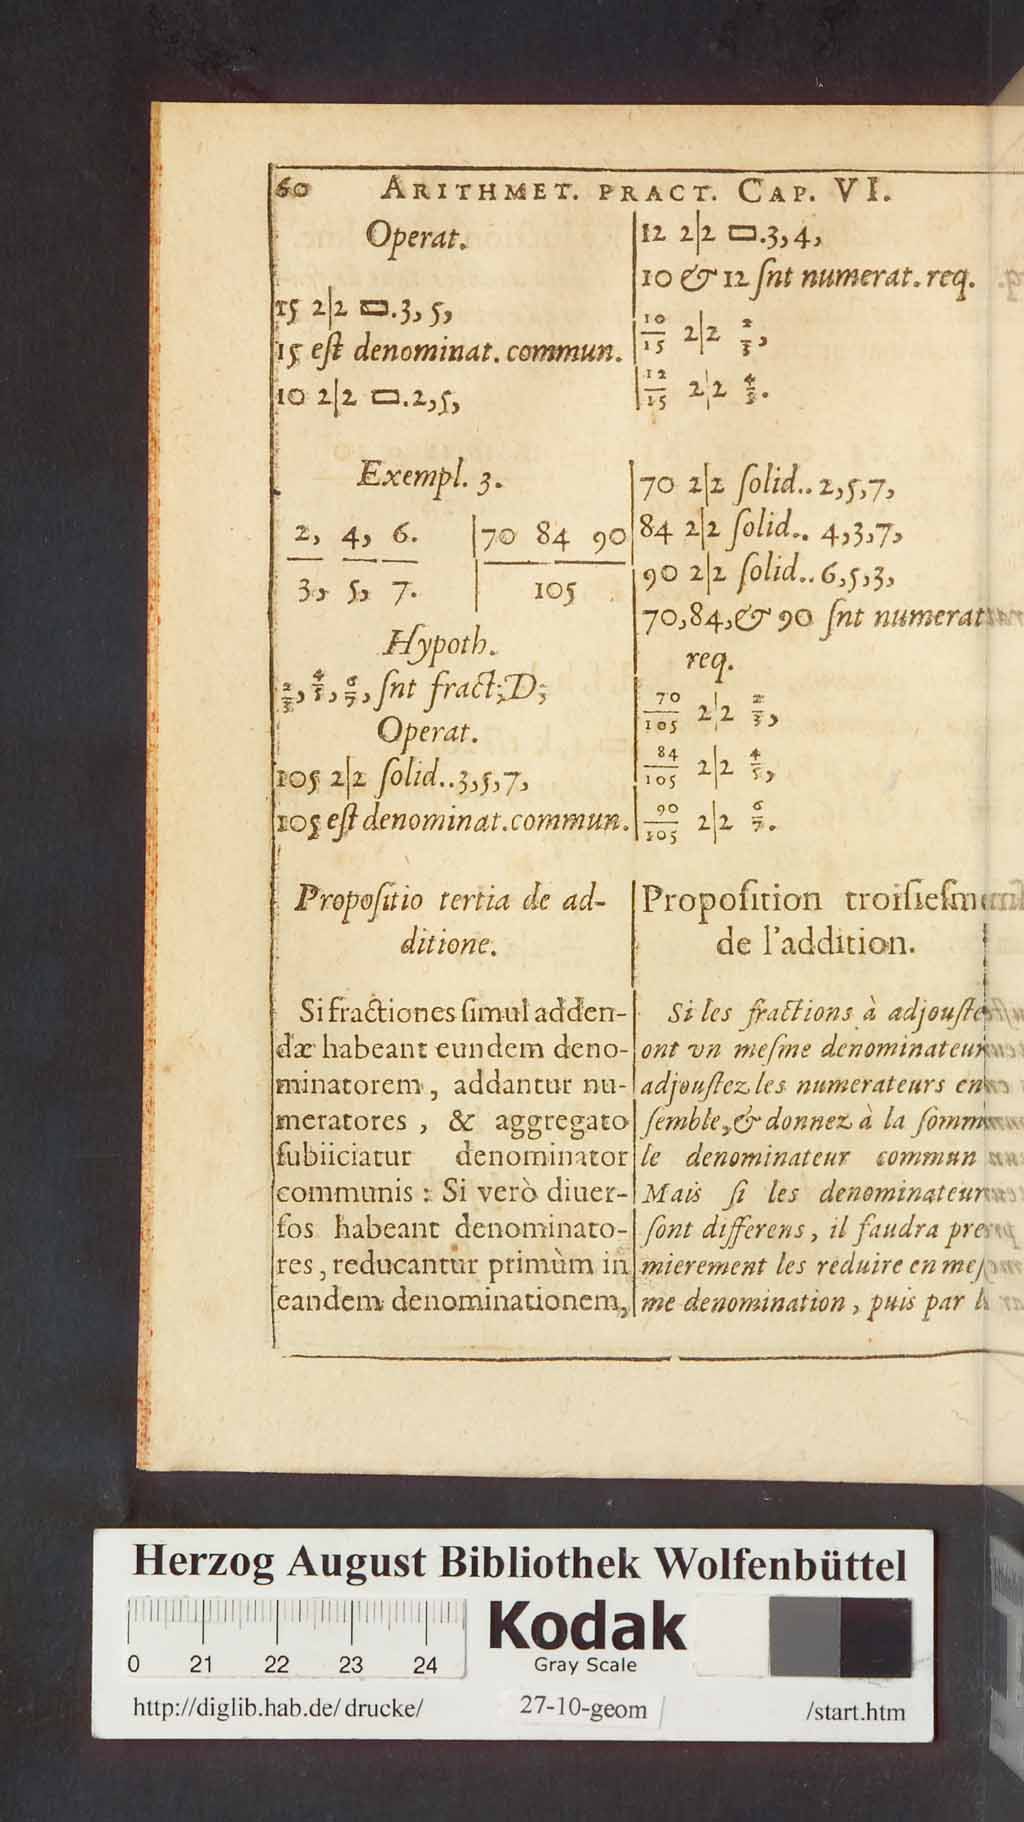 60 ARITHMET. PRACT. CAP. VI.
Operat.
15 2|2 ▭.3, 5,
15 est denominat. commun.
10 2|2 ▭.2,5,
12 2|2 ▭.3,4,
10 & 12 ſnt numerat. req.
10/15 2|2 2/3,
12/15 2|2 4/5.
Exempl. 3.
2, 4, 6. | 70 84 90
3, 5, 7. | 105
Hypoth.
2/3, 4/5, 6/7, ſnt fract; D;
Operat.
105 2|2 ſolid..3,5,7,
105 eſt denominat. commun.
70 2|2 ſolid..2,5,7,
84 2|2 ſolid.. 4,3,7,
90 2|2 ſolid..6,5,3,
70,84,& 90 ſnt numerat
req.
70/105 2|2 2/3,
84/105 2|2 4/5,
90/105 2|2 6/7.
Propoſitio tertia de ad-
ditione.
Si fractiones ſimul adden-
dæ habeant eundem deno-
minatorem, addantur nu-
meratores, & aggregato
ſubiiciatur denominator
communis : Si verò diuer-
ſos habeant denominato-
res, reducantur primùm in
eandem denominationem,
Propoſition troiſieſme
de l'addition.
Si les fractions à adjouſter
ont vn meſme denominateur
adjouſtez les numerateurs en
ſemble, & donnez à la ſomme
le denominateur commun
Mais ſi les denominateurs
ſont differens, il faudra pre
mierement les reduire en meſ
me denomination, puis par
Herzog August Bibliothek Wolfenbüttel
Kodak
Gray Scale
0 21 22 23 24
http://diglib.hab.de/drucke/ 27-10-geom /start.htm